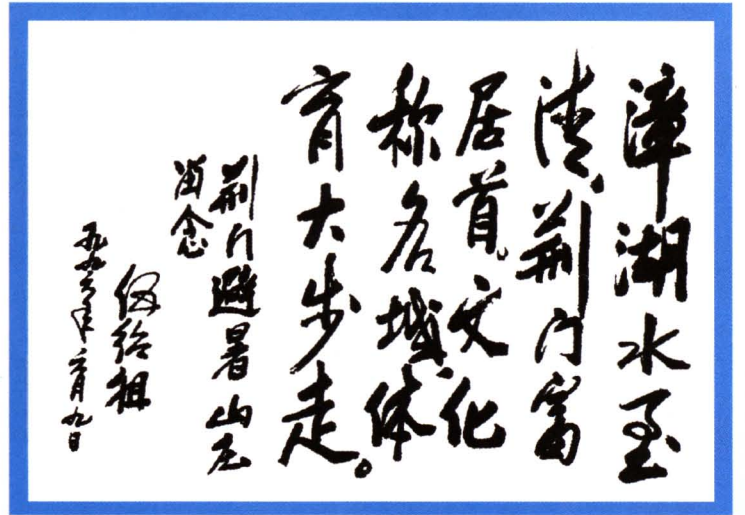 漳湖水至
清、荆门富
居首。文化
称名城、体
育大步走。
荆门避暑山庄
留念
伍绍祖
一九九六年六月九日